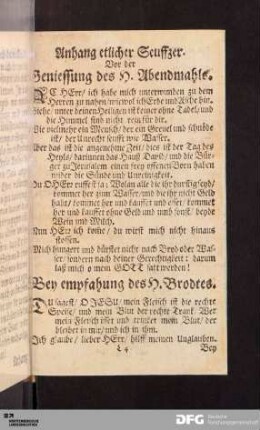 Anhang etlicher Seuffzer.
Vor der
Geniessung des H. Abendmahls.
ACHErr/ ich habe mich unterwunden zu dem
Herren zu nahen/ wiewol ich Erde und Asche bin.
Siehe/ unter deinen Heiligen ist keiner ohne Tadel/ und
die Himmel sind nicht rein für dir.
Wie vielmehr ein Mensch/ der ein Greuel und schnöde
ist/ der Unrecht seufft wie Wasser.
Aber das ist die angenehme Zeit/ dies ist der Tag des
Heyls/ darinnen das Hauß David/ und die Bür-
ger zu Jerusalem einen frey offenen Born haben
wider die Sünde und Unreinigkeit.
Du OHErr ruffest ja: Wolan alle die ihr durstig seyd/
kommet her zum Wasser/ und die ihr nicht Geld
habt/ kommet her und kauffet und esset/ kommet
her und kauffet ohne Geld und umb sonst/ beyde
Wein und Milch.
Nun HErr ich komme/ du wirst mich nicht hinaus
stossen.
Mich hungert und dürstet nicht nach Brod oder Was-
ser/ sondern nach deiner Gerechtigkeit: darum
laß mich o mein GOTT satt werden!
Bey empfahung des H. Brodtes.
DU sagest/ O JESU/ mein Fleisch ist die rechte
Speise/ und mein Blut der rechte Tranck. Wer
mein Fleisch isset und trincket mein Blut/ der
bleibet in mir/ und ich in ihm.
Ich glaube/ lieber HErr/ hilff meinen Unglauben.
Bey
DFG